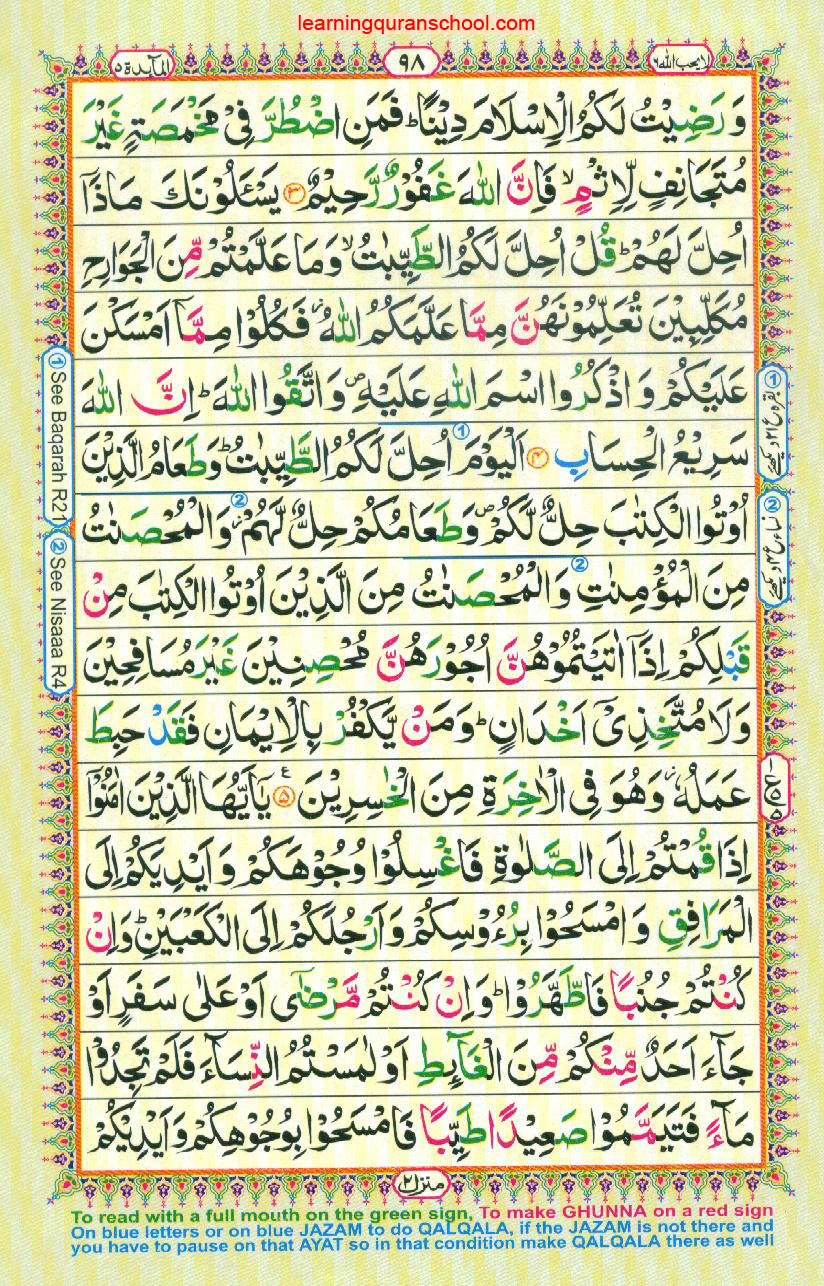 learningquranschool.com
لا يحب الله ٦ ٩٨ المآئدة ٥
وَ رَضِيْتُ لَكُمُ الْاِسْلَامَ دِيْنًا ؕ فَمَنِ اضْطُرَّ فِيْ مَخْمَصَةٍ غَيْرَ
مُتَجَانِفٍ لِّاِثْمٍ ۙ فَاِنَّ اللّٰهَ غَفُوْرٌ رَّحِيْمٌ ۝٣ يَسْـَٔلُوْنَكَ مَاذَاۤ
اُحِلَّ لَهُمْ ؕ قُلْ اُحِلَّ لَكُمُ الطَّيِّبٰتُ ۙ وَمَا عَلَّمْتُمْ مِّنَ الْجَوَارِحِ
مُكَلِّبِيْنَ تُعَلِّمُوْنَهُنَّ مِمَّا عَلَّمَكُمُ اللّٰهُ ؗ فَكُلُوْا مِمَّاۤ اَمْسَكْنَ
عَلَيْكُمْ وَ اذْكُرُوا اسْمَ اللّٰهِ عَلَيْهِ ۪ وَ اتَّقُوا اللّٰهَ ؕ اِنَّ اللّٰهَ
سَرِيْعُ الْحِسَابِ ۝٤ اَلْيَوْمَ اُحِلَّ لَكُمُ الطَّيِّبٰتُ ؕ وَطَعَامُ الَّذِيْنَ
اُوْتُوا الْكِتٰبَ حِلٌّ لَّكُمْ ۪ وَطَعَامُكُمْ حِلٌّ لَّهُمْ ؗ وَالْمُحْصَنٰتُ
مِنَ الْمُؤْمِنٰتِ وَ الْمُحْصَنٰتُ مِنَ الَّذِيْنَ اُوْتُوا الْكِتٰبَ مِنْ
قَبْلِكُمْ اِذَاۤ اٰتَيْتُمُوْهُنَّ اُجُوْرَهُنَّ مُحْصِنِيْنَ غَيْرَ مُسَافِحِيْنَ
وَلَا مُتَّخِذِيْۤ اَخْدَانٍ ؕ وَمَنْ يَّكْفُرْ بِالْاِيْمَانِ فَقَدْ حَبِطَ
عَمَلُهٗ ؗ وَهُوَ فِي الْاٰخِرَةِ مِنَ الْخٰسِرِيْنَ ۝٥ يٰۤاَيُّهَا الَّذِيْنَ اٰمَنُوْۤا
اِذَا قُمْتُمْ اِلَى الصَّلٰوةِ فَاغْسِلُوْا وُجُوْهَكُمْ وَ اَيْدِيَكُمْ اِلَى
الْمَرَافِقِ وَ امْسَحُوْا بِرُءُوْسِكُمْ وَاَرْجُلَكُمْ اِلَى الْكَعْبَيْنِ ؕ وَاِنْ
كُنْتُمْ جُنُبًا فَاطَّهَّرُوْا ؕ وَاِنْ كُنْتُمْ مَّرْضٰۤى اَوْ عَلٰى سَفَرٍ اَوْ
جَآءَ اَحَدٌ مِّنْكُمْ مِّنَ الْغَآئِطِ اَوْ لٰمَسْتُمُ النِّسَآءَ فَلَمْ تَجِدُوْا
مَآءً فَتَيَمَّمُوْا صَعِيْدًا طَيِّبًا فَامْسَحُوْا بِوُجُوْهِكُمْ وَاَيْدِيْكُمْ
① See Baqarah R21
② See Nisaaa R4
منزل ٢
To read with a full mouth on the green sign, To make GHUNNA on a red sign
On blue letters or on blue JAZAM to do QALQALA, if the JAZAM is not there and
you have to pause on that AYAT so in that condition make QALQALA there as well